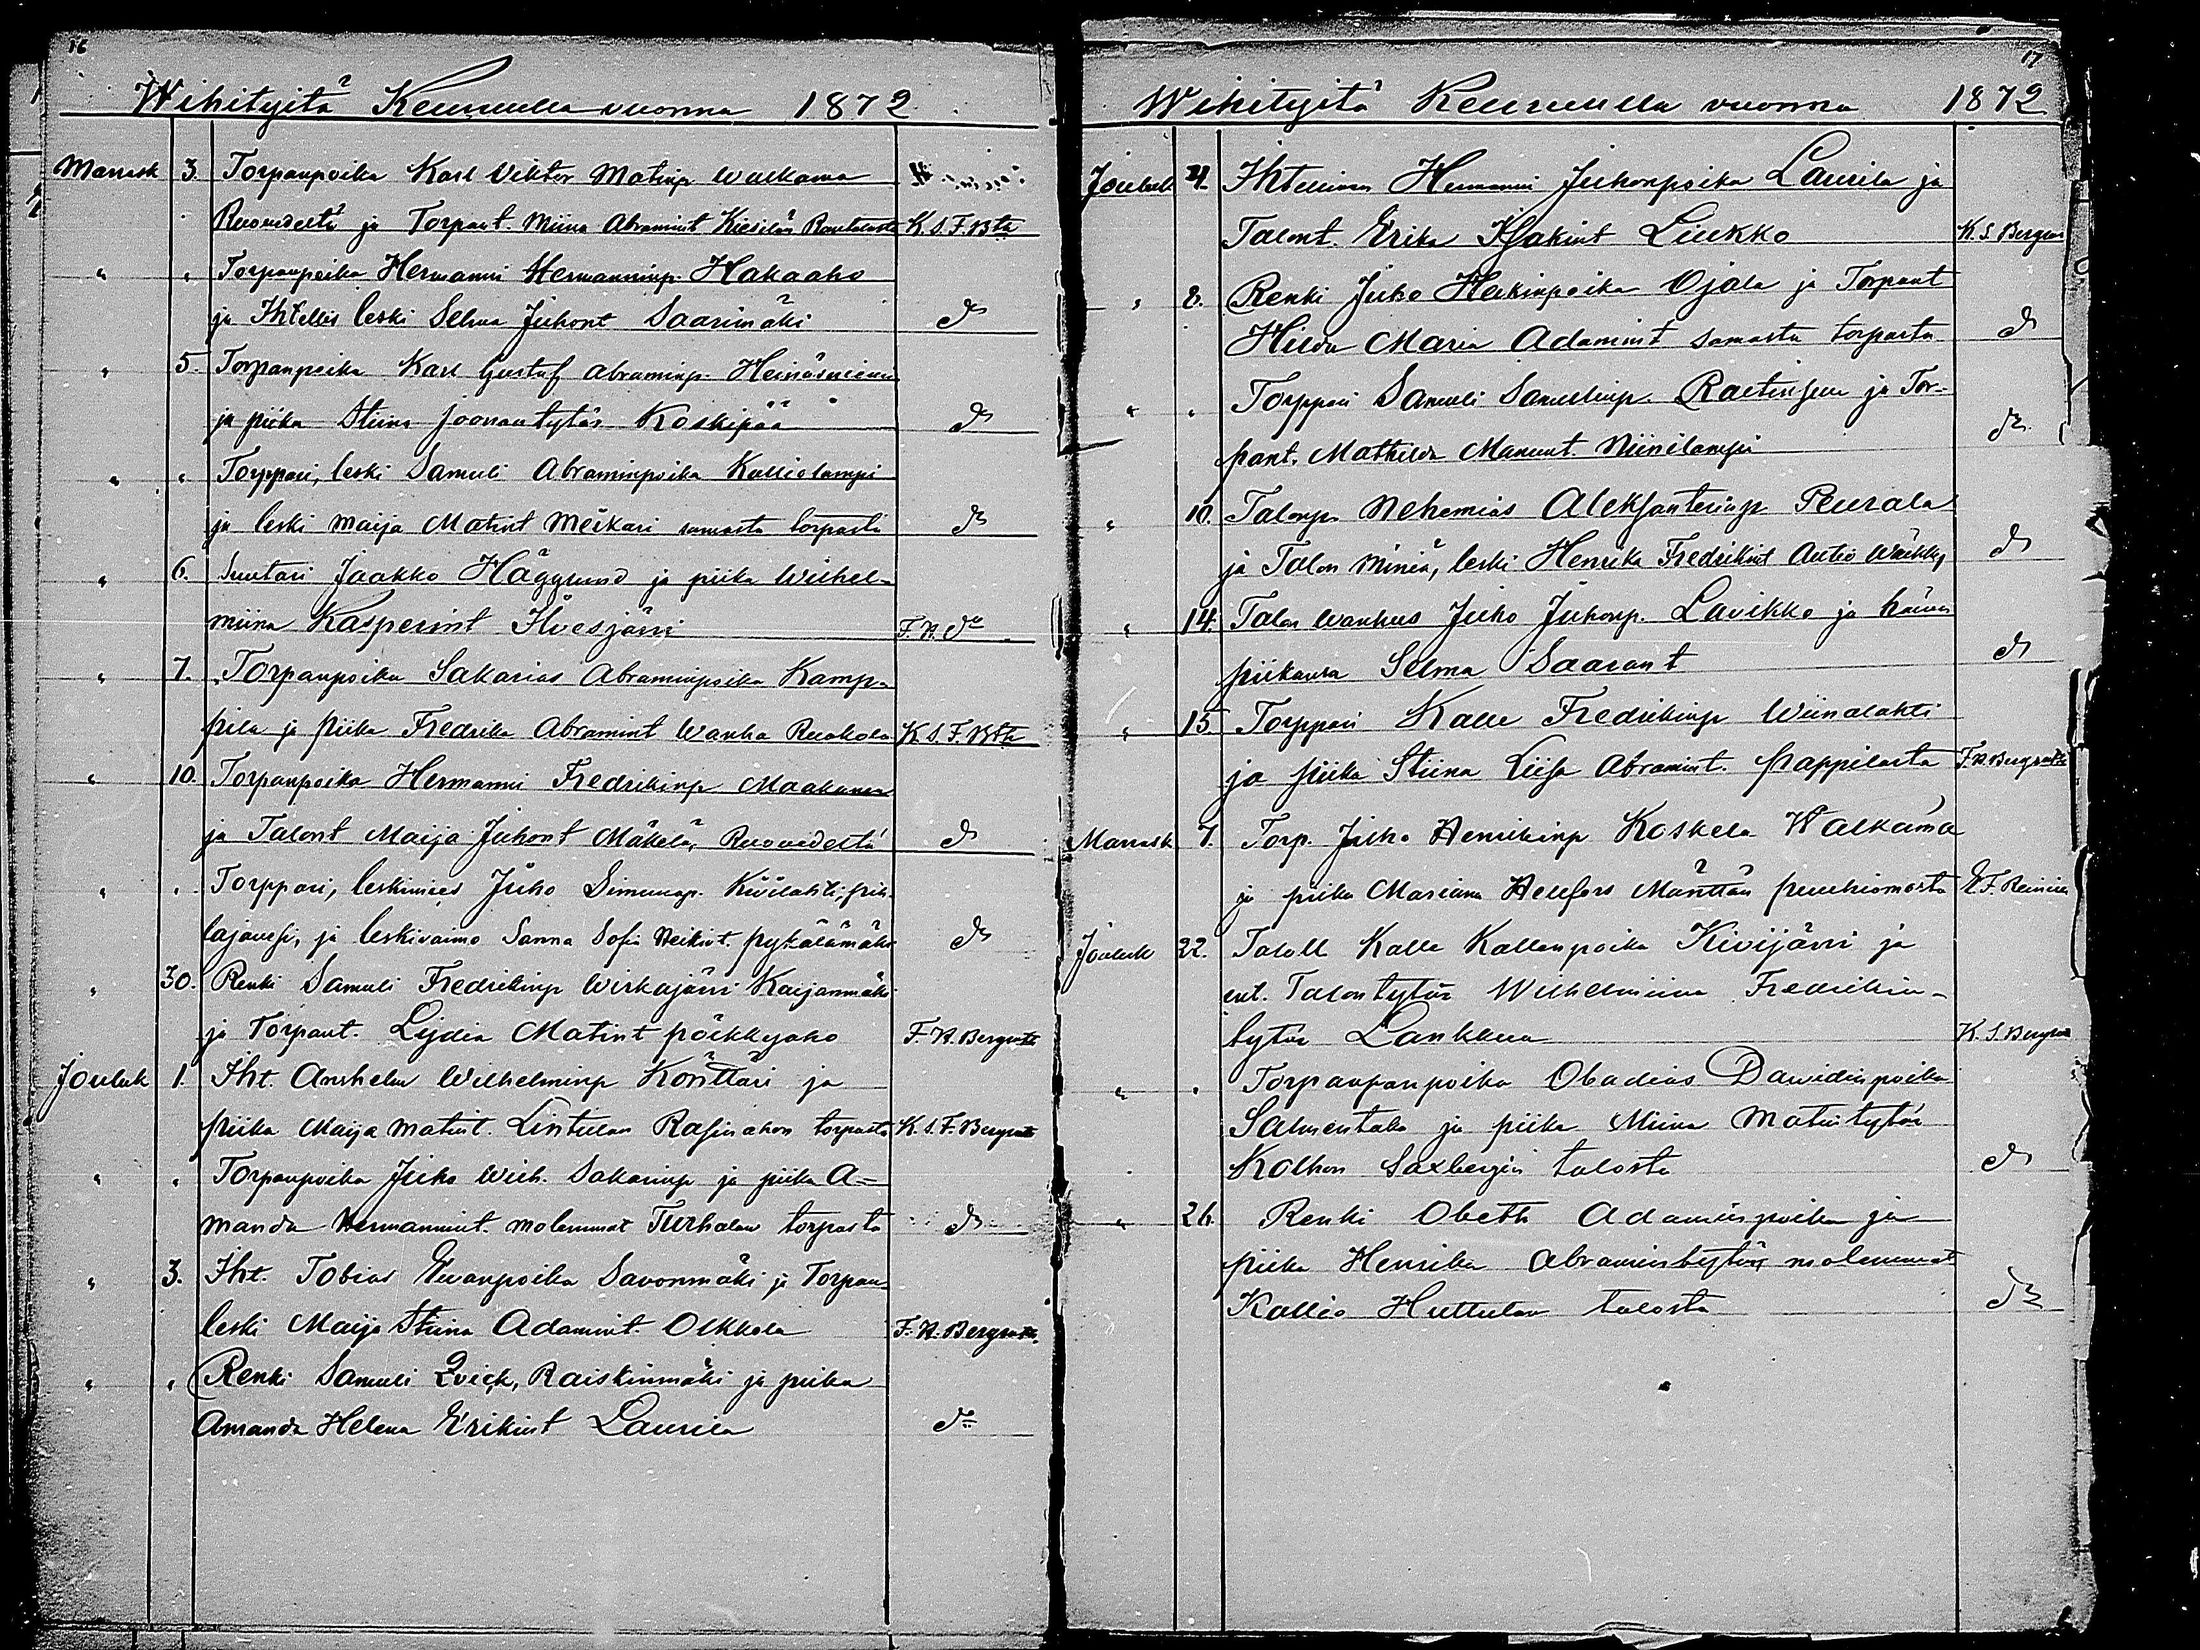 16
Wihityitä Keuruulla vuonna 1872
Marrask 3. Torpanpoika Karl Viktor Matinp Walkama
Ruovedeltä ja Torpant. Miina Abramint Kiesilän Rautalasta K. S. F. Bta
" " Torpanpoika Hermanni Hermanninp. Hakaaho
ja Ihtellis leski Selma Juhont Saarimäki do
" 5. Torpanpoika Karl Gustaf Abraminp. Heinäsuvanu
ja piika Stina Joonantytär Koskipää do
" " Torppari, leski Samuli Abraminpoika Kalliolampi
ja leski Maija Matint Meskari samasta torpasta do
" 6. Suutari Jaakko Häggrund ja piika Wilhel-
miina Kasperint Ilvesjärvi F. H. do
" 7. Torpanpoika Sakarias Abraminpoika Kamp-
pila ja piika Fredrika Abramint Wanha Ruokola K. S. F. Bta
" 10. Torpanpoika Hermanni Fredrikinp Maakanen
ja Talont Maija Juhont Mäkelä, Ruovedeltä do
" " Torppari, leskimies Juho Simunap. Kivilahti, pih-
lajavesi, ja leskivaimo Sanna Sofia Heikint. pykälämäki do
" 30. Renki Samuli Fredrikinp Wirkajärvi Kaijanmäki
ja Torpant. Lydia Matint pöikkyaho F. H. Bergroth
Jouluk 1. Iht. Anshelm Wilhelminp Könttäri ja
piika Maija Matint. Lintulan Rasinahon torpasta K. S. F. Bergroth
" " Torpanpoika Juho Wilh. Sakarinp ja piika A-
manda Hermannint. molemmat Turhalan torpasta do
" 3. Iht. Tobias Eevanpoika Savonmäki ja Torpan
leski Maija Stina Adamint. Olkkola F. H. Bergroth.
" " Renki Samuli Qvick, Raiskinmäki ja piika
Amanda Helena Erikint Laurila do
17
Wihityitä Keuruulla vuonna 1872
Jouluk 4. Ihtellinen Hermanni Juhonpoika Laurila ja
Talont. Erika Isakint Liukko K. S. Bergroth
" 8. Renki Juho Heikinpoika Ojala ja Torpant
Hilda Maria Adamint samasta torpasta do
" " Torppari Samuli Samulinp. ja Tor-
pant. Mathilda Manunt. Niinilampi do
" 10. Talonp. Nehemias Aleksanterinp Peurala
ja Talon miniä, leski Henrika Fredrikint Autio do
" 14. Talon wanhus Juho Juhonp. Lavikko ja hänen
piikansa Selma Saarant do
" 15 Torppari Kalle Fredrikinp Wiinalahti
ja piika Stiina Liisa Abramint. pappilasta F. H. Bergroth
Marrask 7. Torp. Juho Henrikinp Koskela Walkama
ja piika Mariana Helsfors Mänttän puuhiomosta E. F.
Jouluk 22. Taloll Kalle Kallenpoika Kivijärvi ja
ent. Talontytär Wilhelmiina Fredrikin-
tytär Lankkua K. S. Bergroth
" " Torpanpanpoika Obadias Dawidinpoika
Salmentaka ja piika Miina Matintytär
Kolhon Saxbergin talosta do
" 26. Renki Obeth Adaminpoika ja
piika Henrika Abramintytär molemmat
Kallio Huttulan talosta do